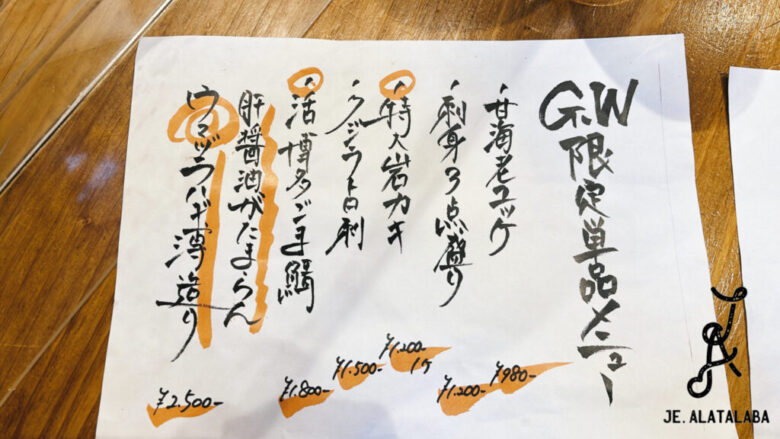 G.W限定単品メニュー
・甘海老ユッケ
¥980-
・刺身3点盛り
¥1.200-
・特大岩カキ
¥1.200-
1ケ
・クジラトロ刺
¥1.500-
・活博多ごま鯖
¥1.800-
肝醤油がたまらん
ウマヅラハギ薄造り
¥2.500-
JE. ALATALABA